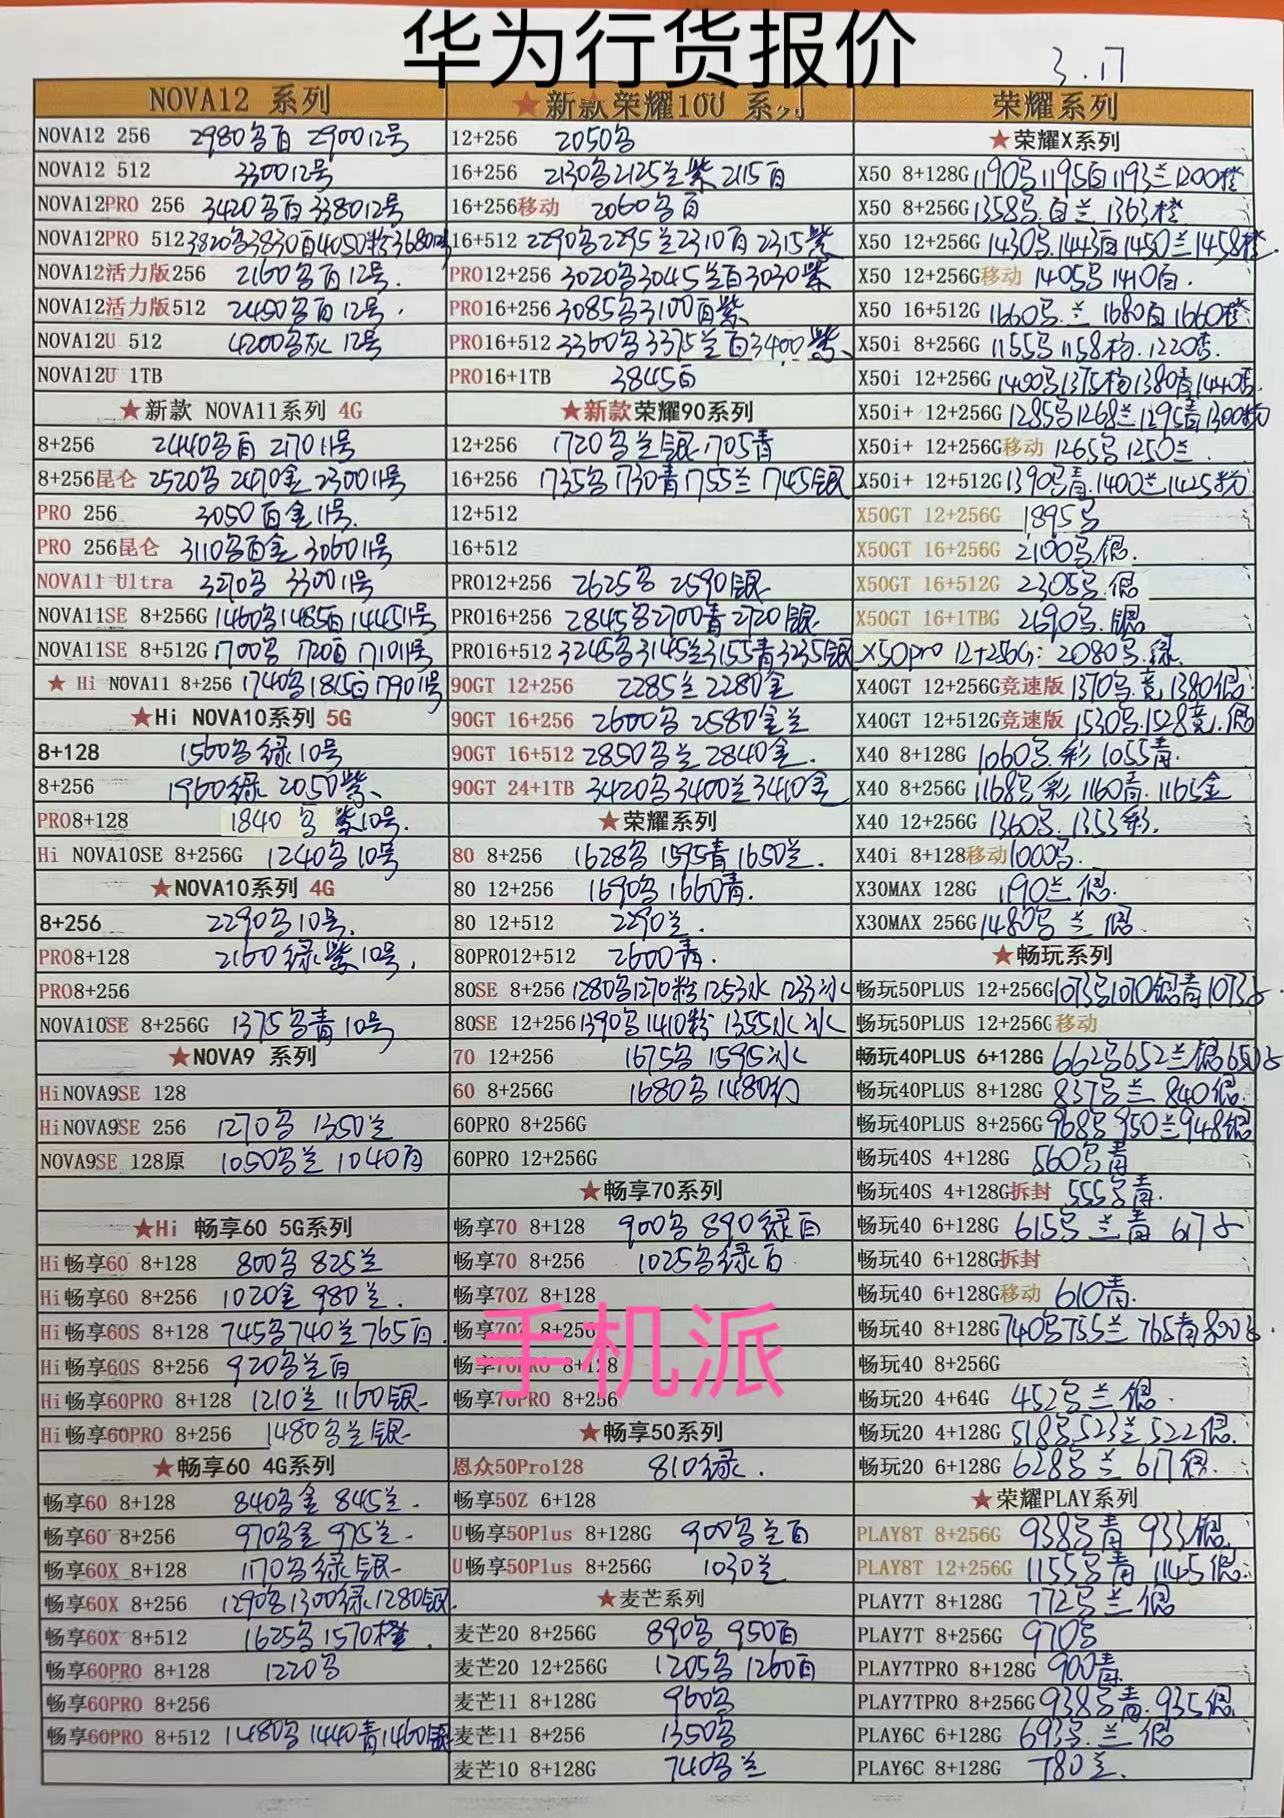 华为行货报价
3.17
NOVA12 系列
NOVA12 256 2980黑白 2900 12号
NOVA12 512 3300 12号
NOVA12PRO 256 3420黑白 3380 12号
NOVA12PRO 512 3820黑 3830白 4050粉 3680 12号
NOVA12活力版256 2160黑白 12号.
NOVA12活力版512 2450黑白 12号.
NOVA12U 512 4200黑灰 12号
NOVA12U 1TB
★新款 NOVA11系列 4G
8+256 2440黑白 2170 11号
8+256昆仑 2520黑 2470金 2300 11号
PRO 256 3050白金 11号.
PRO 256昆仑 3110黑白金 3060 11号
NOVA11 Ultra 3270黑 3300 11号
NOVA11SE 8+256G 1460黑 1485白 1445 11号
NOVA11SE 8+512G 1700黑 1720白 1710 11号
★ Hi NOVA11 8+256 1740黑 1815白 1790 11号
★Hi NOVA10系列 5G
8+128 1560黑绿 10号
8+256 1960绿 2050紫
PRO8+128 1840 黑 紫 10号.
Hi NOVA10SE 8+256G 1240黑 10号
★NOVA10系列 4G
8+256 2290黑 10号.
PRO8+128 2160绿紫 10号.
PRO8+256
NOVA10SE 8+256G 1375黑青 10号
★NOVA9 系列
HiNOVA9SE 128
HiNOVA9SE 256 1270黑 1350兰
NOVA9SE 128原 1050黑兰 1040白
★Hi 畅享60 5G系列
Hi畅享60 8+128 800黑 825兰
Hi畅享60 8+256 1020金 980兰.
Hi畅享60S 8+128 745黑 740兰 765白.
Hi畅享60S 8+256 920黑兰白
Hi畅享60PRO 8+128 1210兰 1160银
Hi畅享60PRO 8+256 1480黑兰银
★畅享60 4G系列
畅享60 8+128 840黑金 845兰.
畅享60 8+256 970黑金 975兰.
畅享60X 8+128 1170黑绿银
畅享60X 8+256 1290黑 1300绿 1280银.
畅享60X 8+512 1625黑 1570橙.
畅享60PRO 8+128 1220黑
畅享60PRO 8+256
畅享60PRO 8+512 1480黑 1440青 1460银
★新款荣耀100 系列
12+256 2050黑
16+256 2130黑 2125兰紫 2115白
16+256移动 2060黑白
16+512 2290黑 2295兰 2310白 2315紫
PRO12+256 3020黑 3045兰白 3030紫
PRO16+256 3085黑 3100白紫
PRO16+512 3360黑 3375兰白 3400紫
PRO16+1TB 3845白
★新款荣耀90系列
12+256 1720黑兰银 1705青
16+256 1735黑 1730青 1755兰 1745银
12+512
16+512
PRO12+256 2625黑 2590银
PRO16+256 2845黑 2700青 2720银
PRO16+512 3245黑 3145兰 3155青 3235银
90GT 12+256 2285兰 2280金
90GT 16+256 2600黑 2580金兰
90GT 16+512 2850黑兰 2840金.
90GT 24+1TB 3420黑 3400兰 3410金
★荣耀系列
80 8+256 1628黑 1595青 1650兰.
80 12+256 1690黑 1660青.
80 12+512 2290兰.
80PRO12+512 2600青.
80SE 8+256 1280黑 1270粉 1253水 1233冰
80SE 12+256 1390黑 1410粉 1355水冰
70 12+256 1675黑 1595冰
60 8+256G 1680黑 1480
60PRO 8+256G
60PRO 12+256G
★畅享70系列
畅享70 8+128 900黑 890绿白
畅享70 8+256 1025黑绿白
畅享70Z 8+128
畅享70Z 8+256
手机派
畅享70PRO 8+128
畅享70PRO 8+256
★畅享50系列
恩众50Pro128 810绿.
畅享50Z 6+128
U畅享50Plus 8+128G 900黑兰白
U畅享50Plus 8+256G 1030兰
★麦芒系列
麦芒20 8+256G 890黑 950白
麦芒20 12+256G 1205黑 1260白
麦芒11 8+128G 960黑
麦芒11 8+256 1350黑
麦芒10 8+128G 740黑兰
荣耀系列
★荣耀X系列
X50 8+128G 1190黑 1195白 1193兰 1200橙
X50 8+256G 1358黑.白兰 1363橙
X50 12+256G 1430黑.1443白 1450兰.1458橙
X50 12+256G移动 1405黑 1410白.
X50 16+512G 1660黑.兰 1680白 1660橙
X50i 8+256G 1155黑 1158杨.1220杏.
X50i 12+256G 1400黑 1375杨 1380青 1440杏.
X50i+ 12+256G 1285黑 1268兰 1295青 1300粉
X50i+ 12+256G移动 1265黑 1250兰.
X50i+ 12+512G 1390黑青.1400兰 1425粉
X50GT 12+256G 1895黑
X50GT 16+256G 2100黑银.
X50GT 16+512G 2305黑.银
X50GT 16+1TBG 2690黑.银
X50pro 12+256G: 2080黑.绿.
X40GT 12+256G竞速版 1370黑.竞 1380银.
X40GT 12+512G竞速版 1530黑.1528竞.银
X40 8+128G 1060黑.彩 1055青.
X40 8+256G 1168黑彩 1160青.1165金
X40 12+256G 1360黑.1353彩.
X40i 8+128移动 1000黑.
X30MAX 128G 1190兰银.
X30MAX 256G 1480黑兰银.
★畅玩系列
畅玩50PLUS 12+256G 1073黑 1070银青 1073
畅玩50PLUS 12+256G移动
畅玩40PLUS 6+128G 662黑 652兰银 650
畅玩40PLUS 8+128G 837黑兰 840银.
畅玩40PLUS 8+256G 968黑 950兰 948银
畅玩40S 4+128G 560黑青
畅玩40S 4+128G拆封 555黑青.
畅玩40 6+128G 615黑兰青 617
畅玩40 6+128G拆封
畅玩40 6+128G移动 610青.
畅玩40 8+128G 740黑 755兰 765青 800
畅玩40 8+256G
畅玩20 4+64G 452黑兰银.
畅玩20 4+128G 518黑 523兰 522银.
畅玩20 6+128G 628黑兰 617银.
★荣耀PLAY系列
PLAY8T 8+256G 938黑青 933银
PLAY8T 12+256G 1155黑青 1145银.
PLAY7T 8+128G 772黑兰银
PLAY7T 8+256G 970黑
PLAY7TPRO 8+128G 900青.
PLAY7TPRO 8+256G 938黑青.935银.
PLAY6C 6+128G 693黑.兰银
PLAY6C 8+128G 780兰.